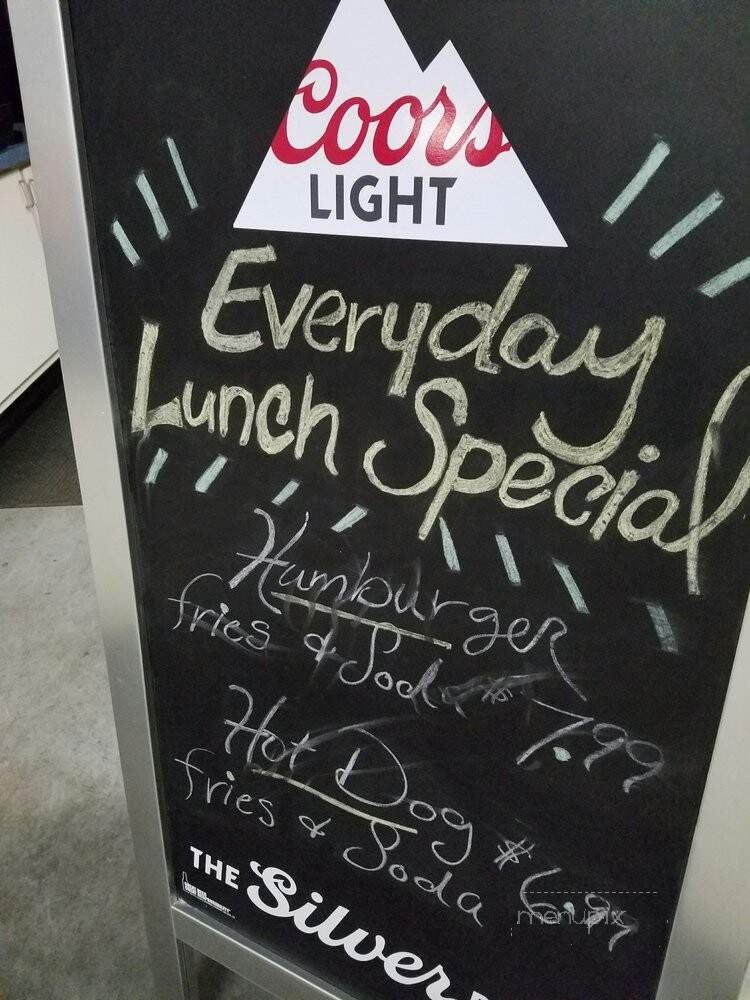 Coors
LIGHT
Everyday
Lunch Special
Hamburger
fries & Soda $7.99
Hot Dog
fries & Soda $6.99
THE Silver
menupix